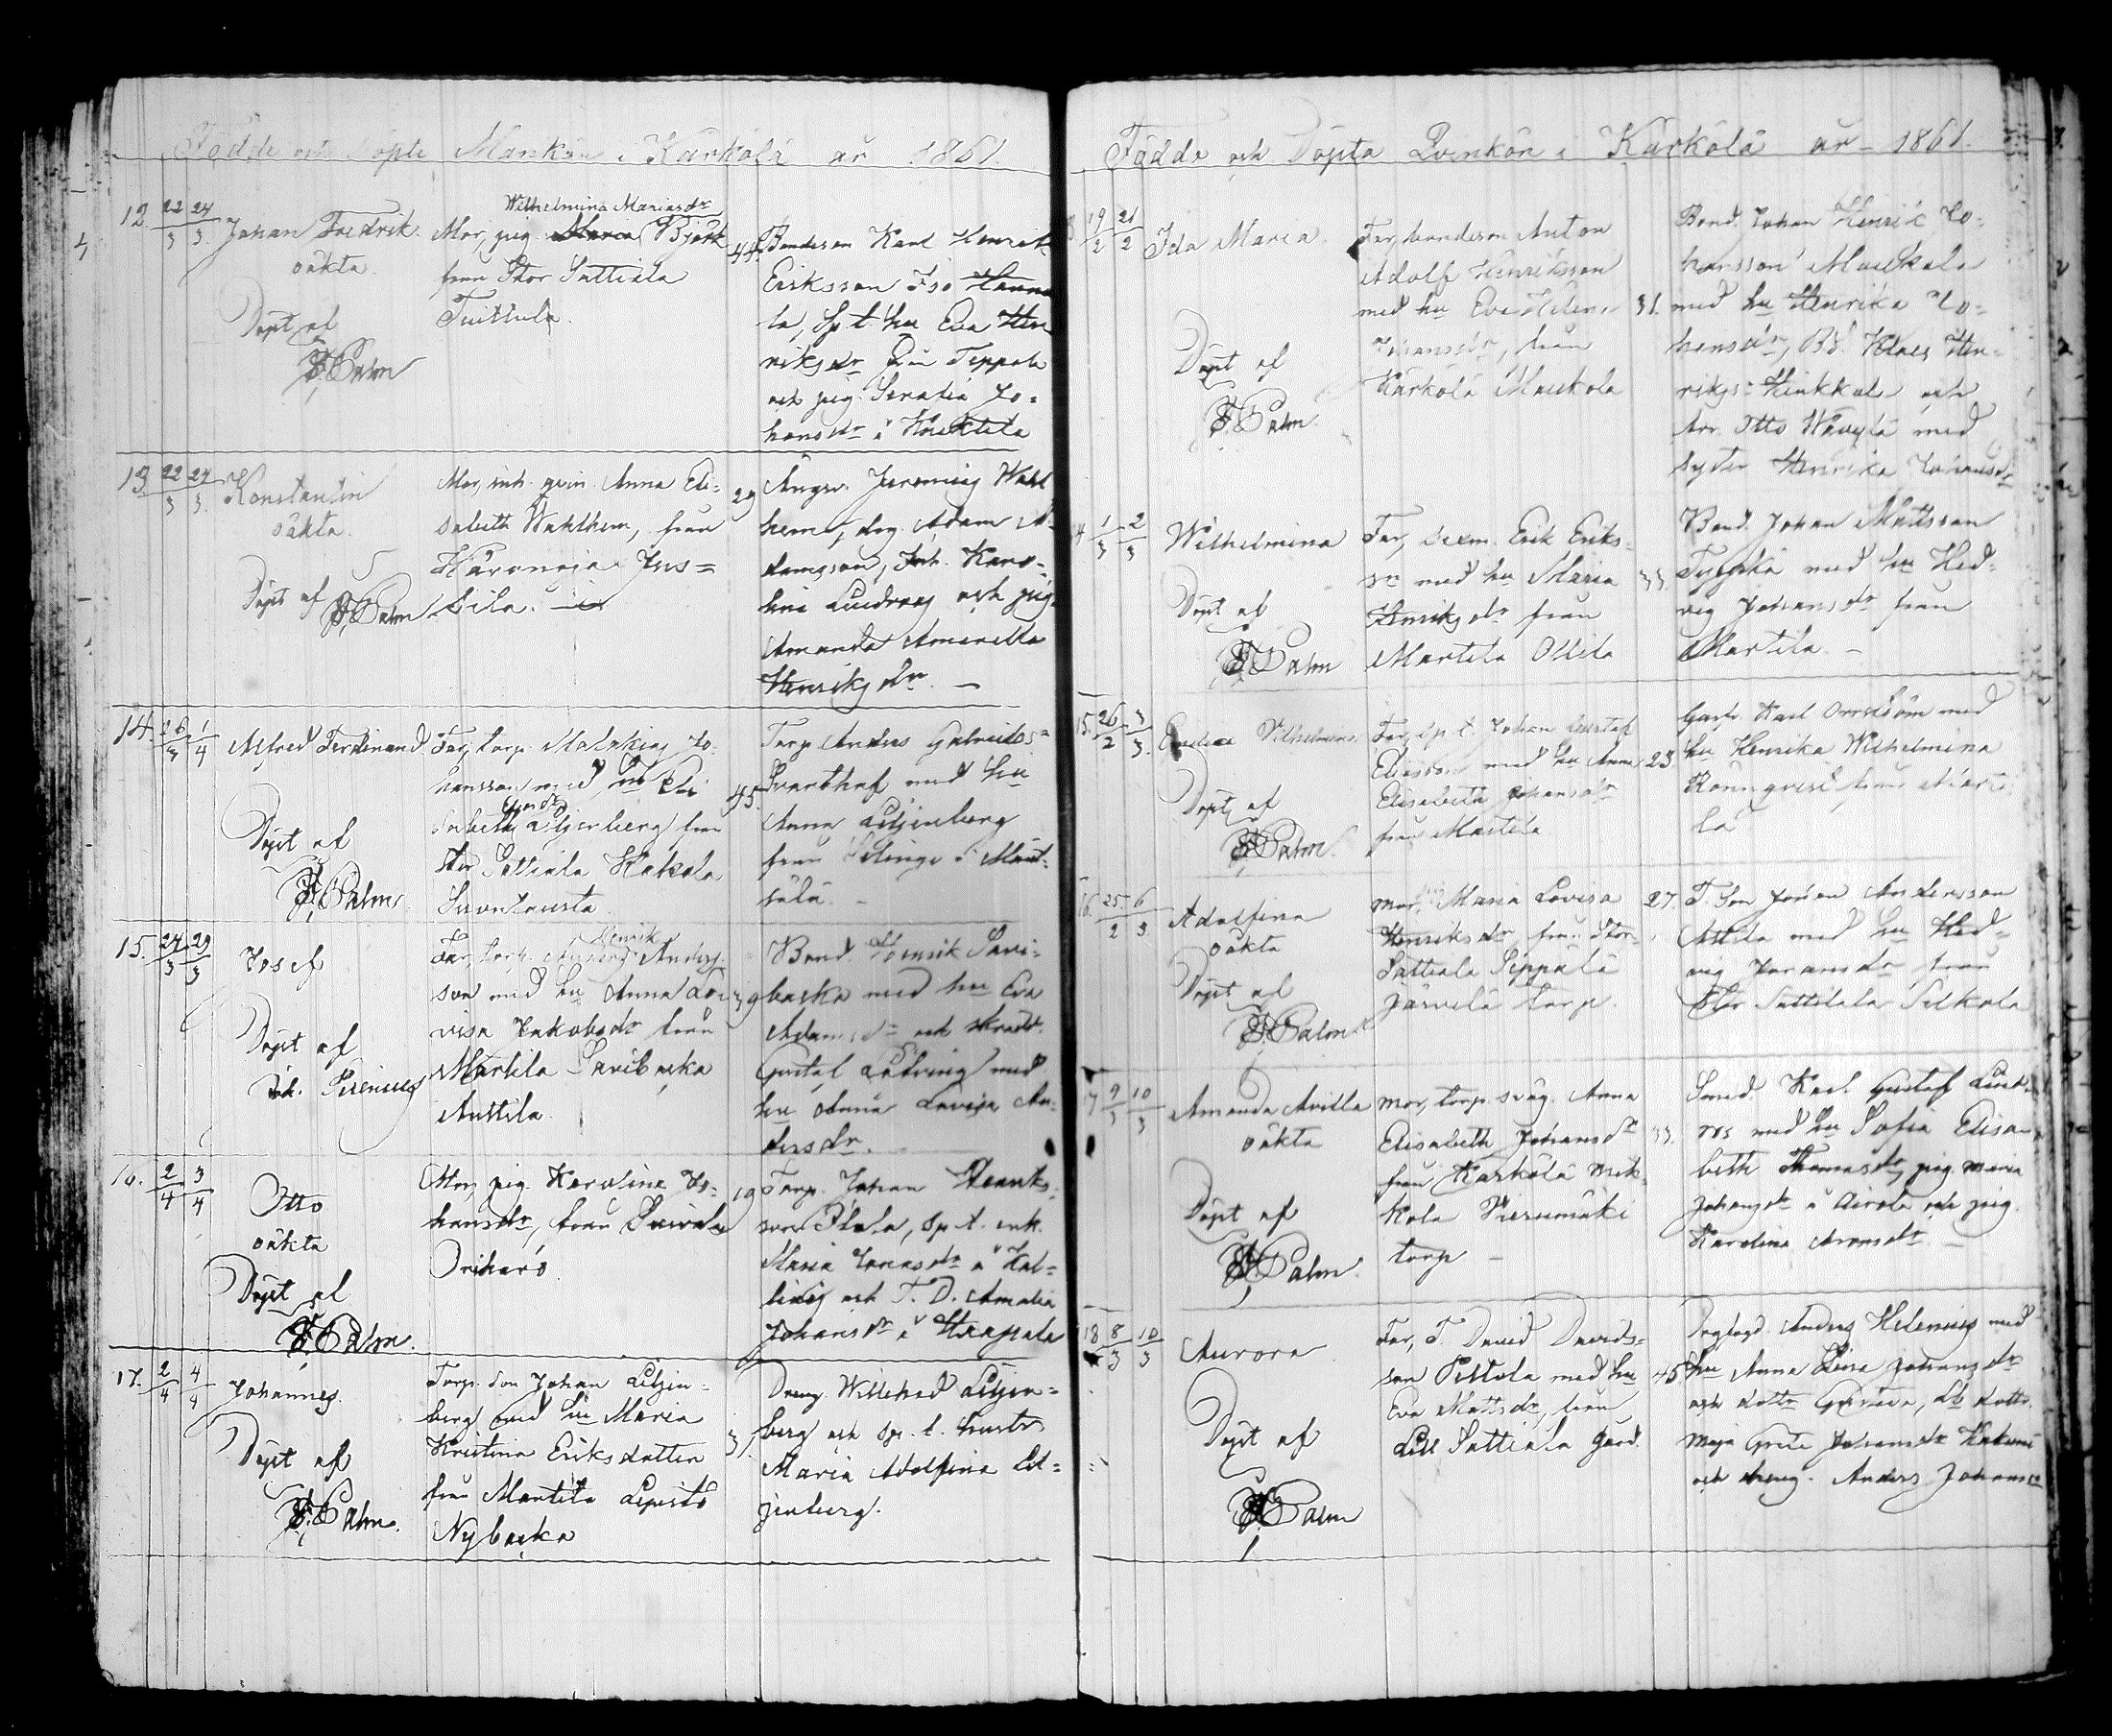 Födde och Döpte Mankön i Kärkölä år 1861.
12. 22/3 24/3. Johan Fredrik.
oäkta.
Döpt af
Palm
Wilhelmina Mariasdr
Mor, pig. Maria Björk
från Stor Sattiala
Tuittula.
44.
Bondeson Karl Henrik
Eriksson Iso Hanna
la, Sp t. hu Eva Hen
riksdr Seppälä
och pig. Serafia Jo-
hansdr i Huktila
13. 22/3 24/3. Konstantin
oäkta.
Döpt af Palm
Mor, inh. qvin. Anna Eli-
sabeth Wahlhem, från
Häronoja Jus-
sila.
29
Jeremias Wahl
hem, drg. Adam A-
damsson, Inh. Karo-
lina och pig.
Amanda Amarella
Henriksdr. –
14. 26/3 1/4 Alfred Ferdinand.
Döpt af
Palm.
Far, torp. Malakias Jo-
hansson med hu Eli
sabeth Liljenberg från
Stor Sattiala Hakola
45.
Torp Anders Gabrielss-
Svarthaf med hu
Anna Liljenberg
från i Mänt-
sälä. –
15. 24/3 29/3 Josef
Döpt af
Sirenius
Henrik
Far, torp. Anders-
son med hu Anna Lo-
visa Jakobsdr från
Martila Savibacka
Anttila.
39
Bond. Henrik Savi-
backa med hu Eva
Adamsdr och skrädd.
Gustaf med
hu Anna Lovisa An-
dersdr.
16. 2/4 3/4 Otto
oäkta
Döpt af
Palm.
Mor, pig. Karolina Jo-
hansdr, från
19
Torp. Johan Henriks-
son Ylola, Sp t. enk.
Maria
och T. D. Amalia
Johansdr i Haapala
17. 2/4 4/4 Johannes.
Döpt af
Palm.
Torp. son Johan Liljen-
berg med hu Maria
Kristina Eriksdotter
från Martila Lepistö
Nybacka
31.
Dreng. Willehad Liljen-
berg och sp. t. hustr
Maria Adolfina Lil-
jenberg.
Födde och Döpta Qvinkön i Kärkölä år 1861.
19/2 21/2 Ida Maria.
Döpt af
Palm.
Far, bondeson Anton
Adolf Henriksson
med hu Eva Helena
Johansdr, från
Kärkölä Maukola
31.
Bond. Johan Henrik Jo-
hansson Maukola
med hu Henrika Jo-
hansdr, Bs. Klaes Hen-
riks- Hinkkala och
Arr. Otto Wäyylä med
syster Henrika Johansdr
14 1/3 2/3 Wilhelmina
Döpt af
Palm
Far, Sexm. Erik Eriks-
sn med hu Maria
Henriksdr från
Martila Ollila
33.
Bond. Johan Mattsson
med hu Hed-
vig Johansdr från
Martila –
15. 26/2 3/3. Wilhelmina
Döpt af
Palm.
Far, sp t. Johan Gustaf
Eliasson med hu Anna
Elisabeth Johansdr
från Martila
23.
Karl med
hu Henrika Wilhelmina
Rönnqvist från
16. 25/2 6/3 Adolfina
oäkta
Döpt af
Palm
Mor, Maria Lovisa
Henriksdr från Stor-
Sattiala Seppälä
Järvelä torp.
27.
T. Son Johan Andersson
Attila med hu Hed-
vig Johansdr från
Stor Sattiala Silkola
17 9/3 10/3 Amanda Avilla
oäkta
Döpt af
Palm.
Mor, torp. svåg. Anna
Elisabeth Johansdr
från Kärkölä Mik-
kola Pierumäki
torp –
33.
Smed. Karl Gustaf Lind-
ros med hu Sofia Elisa-
beth Thomasdr, pig. Maria
Johansdr i Airola och pig.
Karolina Aronsdr.
18 8/3 10/3 Aurora.
Döpt af
Palm
Far, T. David Davids-
son Pottola med hu
Eva Mattsdr, från
Lill Sattiala Gård.
45
Anders Helenius med
hu Anna Lisa Johansdr
och dottr Gustava, Lb dottr.
Maja Greta Johansdr
och dreng. Anders Johanss